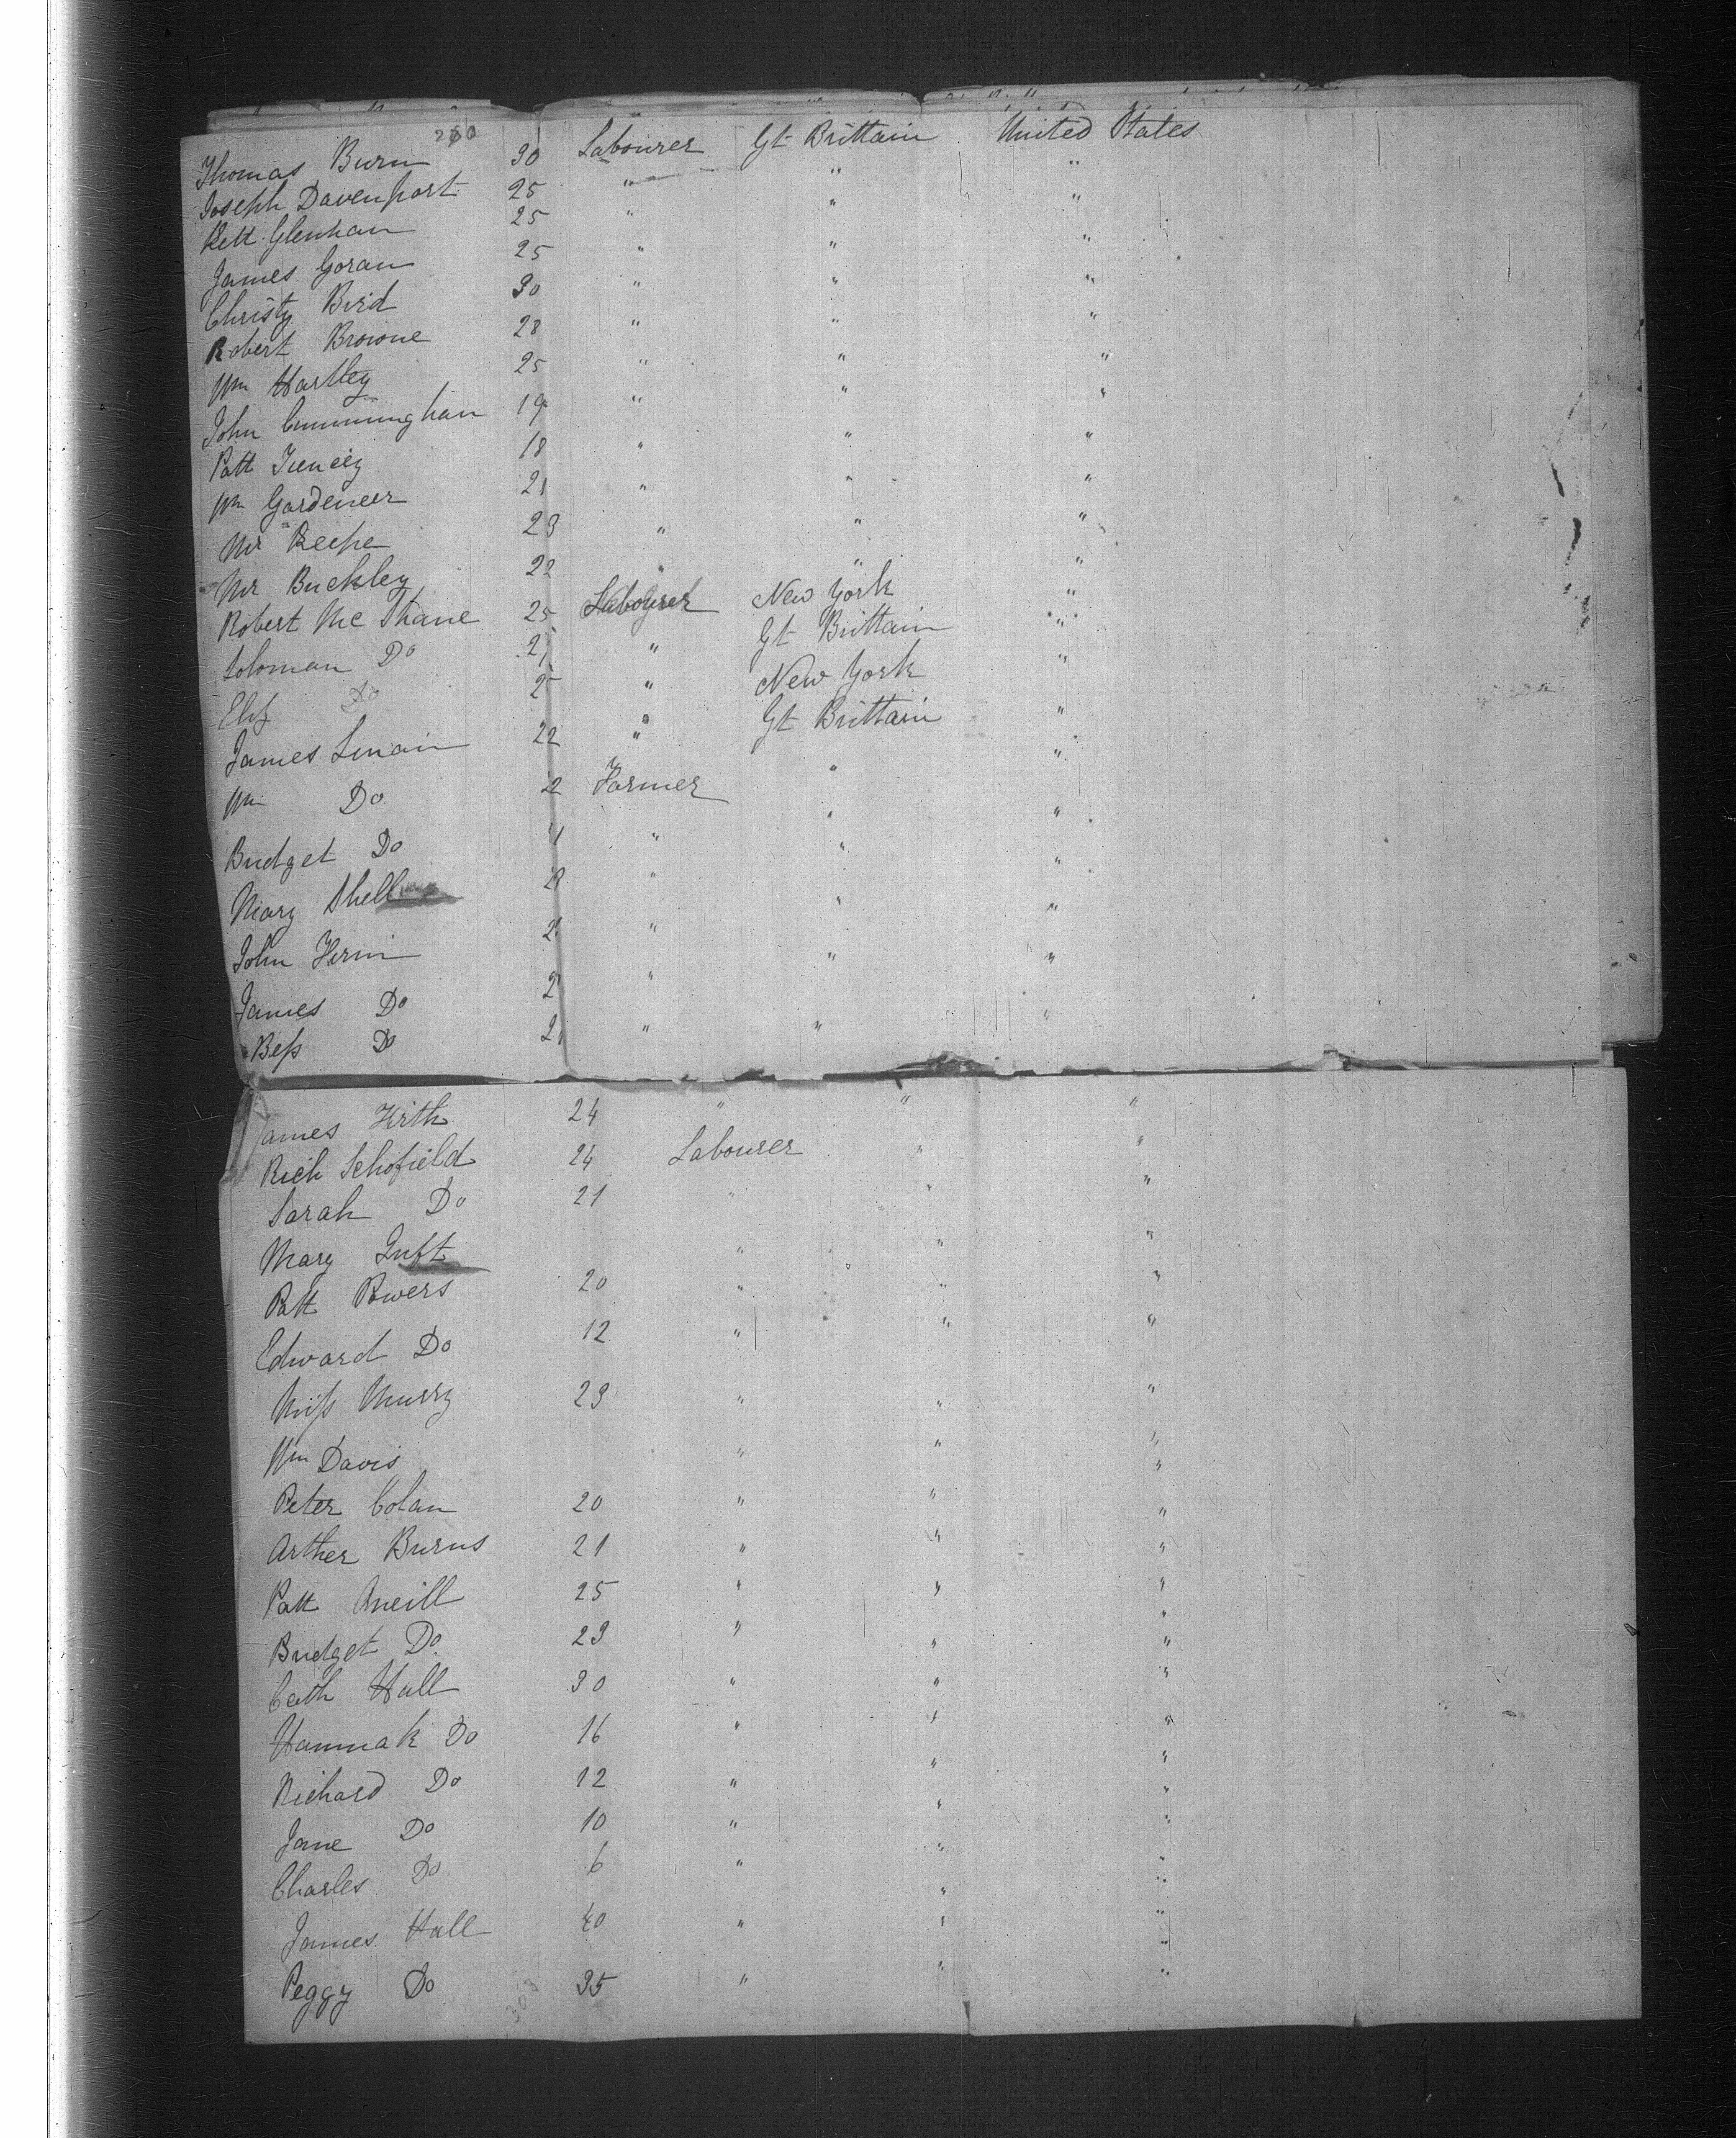 Thomas Burn 30 Labourer Gt Brittain United States
Joseph Davenport 25 " " "
Patt Glenhan 25 " " "
James Goran 25 " " "
Christy Bird 30 " " "
Robert Browne 28 " " "
Wm Hartley 25 " " "
John Cunningham 19 " " "
Patt 18 " " "
Wm Gardeneer 21 " " "
Mr Keepe 23 " " "
Mr Buckley 22 " " "
Robert Mc Shane 25 Labourer New York "
Soloman Do 2 " Gt Brittain "
Do 2 " New York "
James 22 " Gt Brittain "
Wm Do 2 Farmer " "
Bridget Do " " "
Mary Shell " " "
John Firin 2 " " "
James Do 2 " " "
Bess Do 2 " " "
James Firth 24 " " "
Rich Schofield 24 Labourer " "
Sarah Do 21 " " "
Mary Tuft " " "
Patt Powers 20 " " "
Edward Do 12 " " "
Miss Murry 23 " " "
Wm Davis " " "
Peter Colan 20 " " "
Arther Burns 21 " " "
Patt Oneill 25 " " "
Bridget Do 23 " " "
Cath Hall 30 " " "
Hannah Do 16 " " "
Richard Do 12 " " "
Jane Do 10 " " "
Charles Do 6 " " "
James Hall 40 " " "
Peggy Do 35 " " "